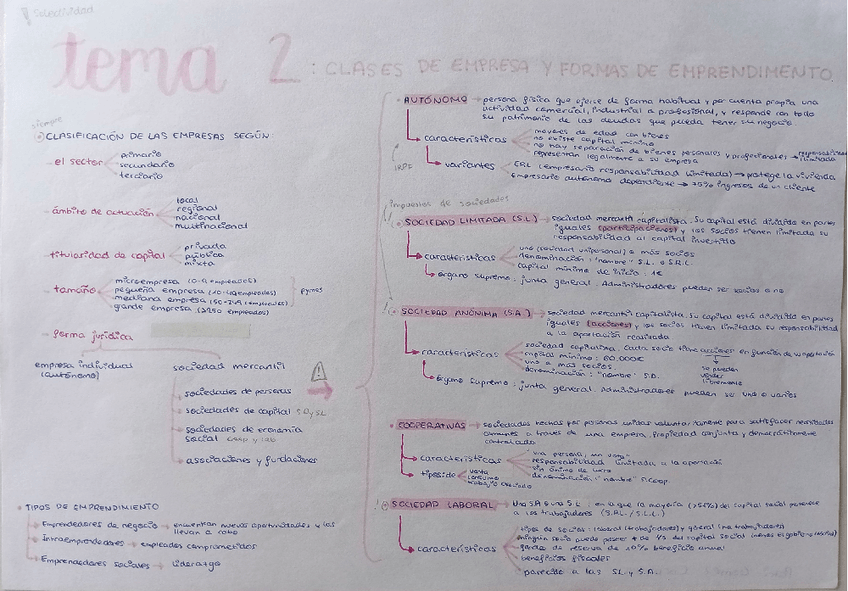 Selectividad
tema 2: CLASES DE EMPRESA Y FORMAS DE EMPRENDIMIENTO.
siempre
CLASIFICACIÓN DE LAS EMPRESAS SEGÚN:
el sector
primario
secundario
terciario
ámbito de actuación
local
regional
nacional
multinacional
titularidad de capital
privada
pública
mixta
tamaño
microempresa (0-9 empleados)
pequeña empresa (10-49 empleados)
mediana empresa (50-249 empleados)
grande empresa (>250 empleados)
pymes
forma jurídica
empresa individual
(autónomo)
sociedad mercantil
sociedades de personas
sociedades de capital SA y SL
sociedades de economía
social coop y lab
asociaciones y fundaciones
TIPOS DE EMPRENDIMIENTO
Emprendedores de negocio → encuentran nuevas oportunidades y las
llevan a cabo
Intraemprendedores → empleados comprometidos
Emprendedores sociales → liderazgo
AUTÓNOMO → persona física que ejerce de forma habitual y por cuenta propia una
actividad comercial, industrial o profesional, y responde con todo
su patrimonio de las deudas que pueda tener su negocio
características
mayores de edad con bienes
no existe capital mínimo
no hay separación de bienes personales y profesionales → responsabilidad
ilimitada
representan legalmente a su empresa
IRPF
variantes
ERL (empresario responsabilidad limitada) → protege la vivienda
Empresario autónomo dependiente → 75% ingresos de un cliente
impuestos de sociedades
SOCIEDAD LIMITADA (S.L) → sociedad mercantil capitalista. Su capital está dividido en partes
iguales (participaciones) y los socios tienen limitada su
responsabilidad al capital invertido
características
uno (sociedad unipersonal) o más socios
denominación: "nombre" S.L. o S.R.L.
capital mínimo de inicio: 1€
órgano supremo: junta general. Administradores pueden ser socios o no
SOCIEDAD ANÓNIMA (S.A) → sociedad mercantil capitalista. Su capital está dividido en partes
iguales (acciones) y los socios tienen limitada su responsabilidad
a la aportación realizada
características
sociedad capitalista. Cada socio tiene acciones en función de su aportación
capital mínimo: 60.000€
uno o más socios
denominación: "nombre" S.A.
se pueden
vender
libremente
órgano supremo: junta general. Administradores pueden ser uno o varios
COOPERATIVAS → sociedades hechas por personas unidas voluntariamente para satisfacer necesidades
comunes a través de una empresa, propiedad conjunta y democráticamente
controlada
características
una persona, un voto
responsabilidad limitada a la aportación
sin ánimo de lucro
denominación: "nombre" S.Coop.
tipos de
consumo
trabajo asociado
SOCIEDAD LABORAL → Una S.A o una S.L: en la que la mayoría del capital social pertenece
a los trabajadores (S.A.L / S.L.L.)
características
tipos de socios: laboral (trabajadores) y general (no trabajadores)
ningún socio puede poseer + de 1/3 del capital social
fondo de reserva de 10% beneficio anual
beneficios fiscales
parecido a las S.L y S.A.